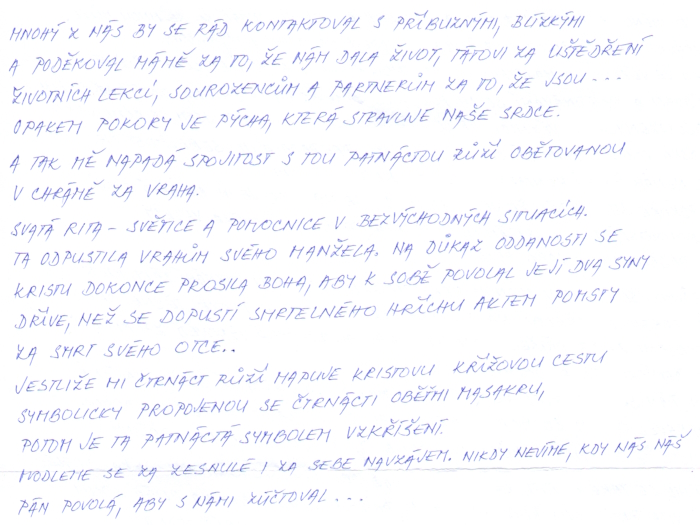 MNOHÝ Z NÁS BY SE RÁD KONTAKTOVAL S PŘÍBUZNÝMI, BLÍZKÝMI
A PODĚKOVAL MÁMĚ ZA TO, ŽE NÁM DALA ŽIVOT, TÁTOVI ZA UŠTĚDŘENÍ
ŽIVOTNÍCH LEKCÍ, SOUROZENCŮM A PARTNERŮM ZA TO, ŽE JSOU...
OPAKEM POKORY JE PÝCHA, KTERÁ STRAVUJE NAŠE SRDCE.
A TAK MĚ NAPADÁ SPOJITOST S TOU PATNÁCTOU RŮŽÍ OBĚTOVANOU
V CHRÁMĚ ZA VRAHA.
SVATÁ RITA - SVĚTICE A POMOCNICE V BEZVÝCHODNÝCH SITUACÍCH.
TA ODPUSTILA VRAHŮM SVÉHO MANŽELA. NA DŮKAZ ODDANOSTI SE
KRISTU DOKONCE PROSILA BOHA, ABY K SOBĚ POVOLAL JEJÍ DVA SYNY
DŘÍVE, NEŽ SE DOPUSTÍ SMRTELNÉHO HŘÍCHU AKTEM POMSTY
ZA SMRT SVÉHO OTCE..
JESTLIŽE MI ČTRNÁCT RŮŽÍ MAPUJE KRISTOVU KŘÍŽOVOU CESTU
SYMBOLICKY PROPOJENOU SE ČTRNÁCTI OBĚŤMI MASAKRU,
POTOM JE TA PATNÁCTÁ SYMBOLEM VZKŘÍŠENÍ.
MODLEME SE ZA ZESNULÉ I ZA SEBE NAVZÁJEM. NIKDY NEVÍME, KDY NÁS NÁŠ
PÁN POVOLÁ, ABY S NÁMI ZÚČTOVAL...